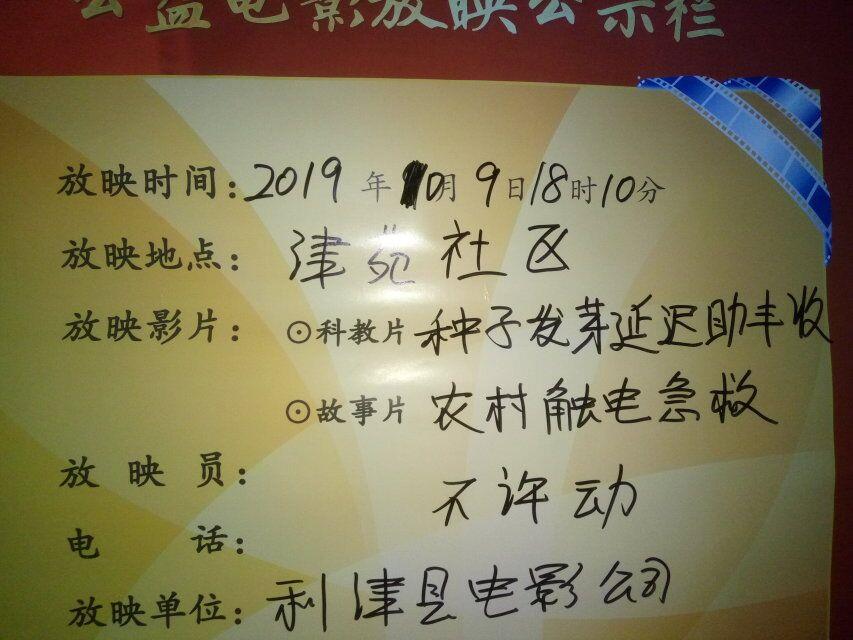 公益电影放映公示栏
放映时间：2019年10月9日18时10分
放映地点：津苑社区
放映影片：⊙科教片 种子发芽延迟助丰收
⊙故事片 农村触电急救
放映员：
不许动
电话：
放映单位：利津县电影公司